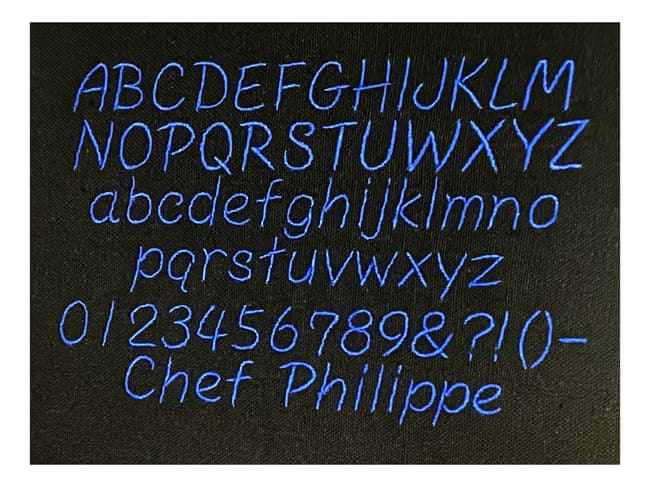 ABCDEFGHIJKLM
NOPQRSTUWXYZ
abcdefghijklmno
pqrstuvwxyz
0123456789&?!()-
Chef Philippe